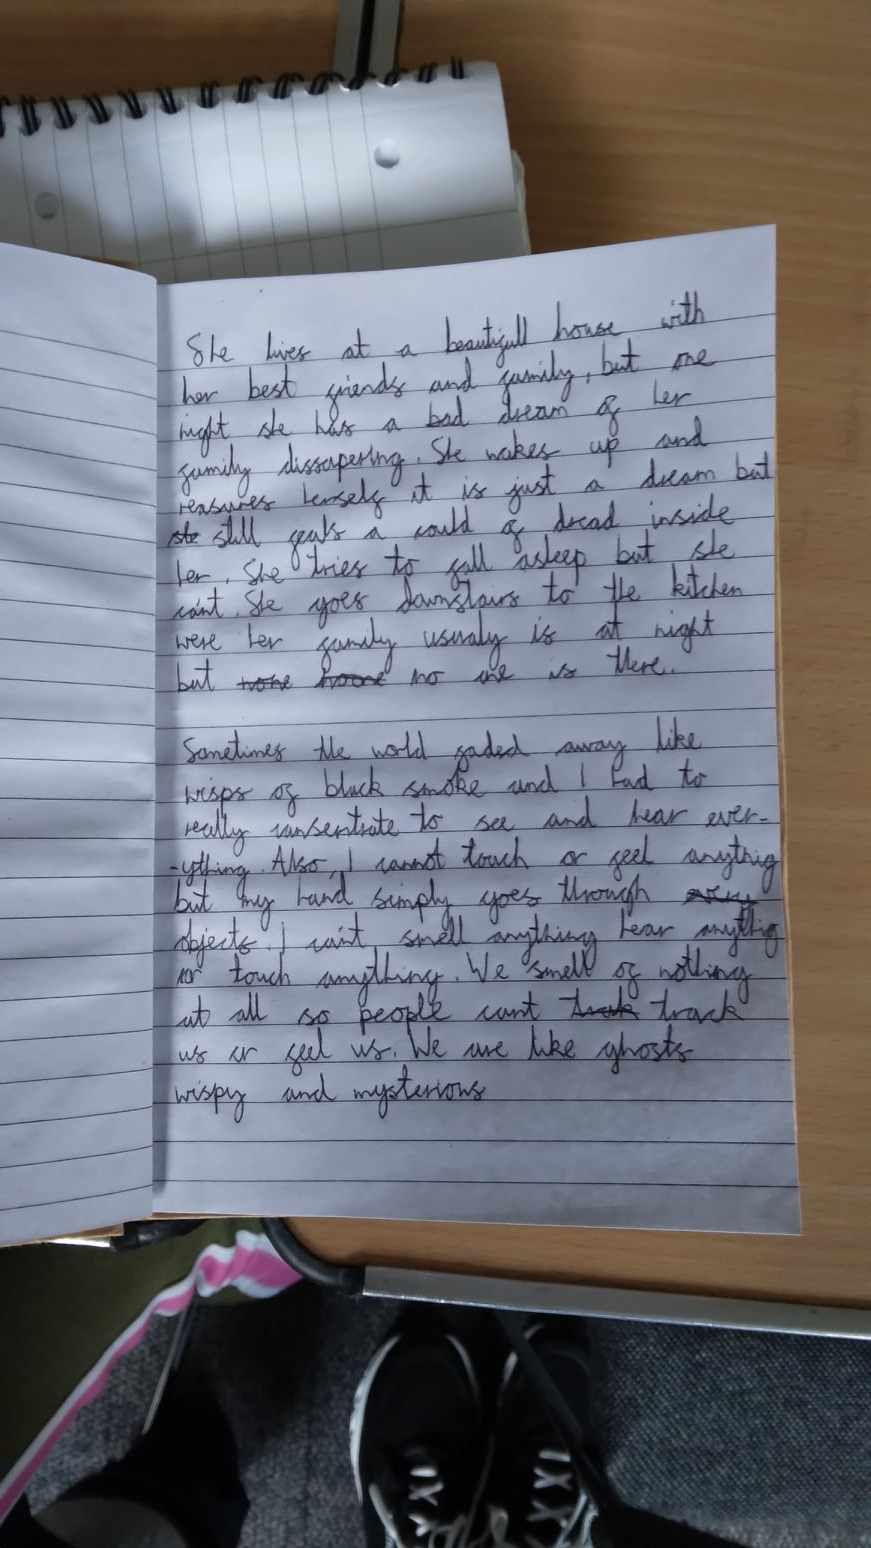 She lives at a beautifull house with
her best friends and family, but one
night she has a bad dream of her
family dissapering. She wakes up and
reasures herself it is just a dream but
she still feals a could of dread inside
her. She tries to fall asleep but she
can't. She goes downstairs to the kitchen
were her family usualy is at night
but none hoone no one is there.
Sometimes the world faded away like
wisps of black smoke and I had to
really consentrate to see and hear ever-
-ything. Also, I cannot touch or feel anythig
but my hand simply goes through
objects. I can't smell anything hear anythig
or touch anything. We smell of nothing
at all so people cant track
us or feel us. We are like ghosts
wispy and mysterious